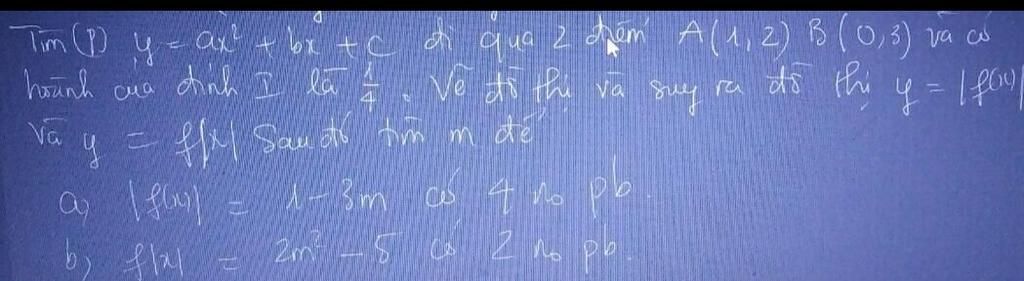 Tìm (P) y = ax² + bx + c đi qua 2 điểm A(1,2) B(0,3) và có
hoành của đỉnh I là 1/4. Vẽ đồ thị và suy ra đồ thị y = |f(x)|
và y = f|x| Sau đó tìm m để
a, |f(x)| = 1-3m có 4 no pb.
b, f|x| = 2m² - 5 có 2 no pb.